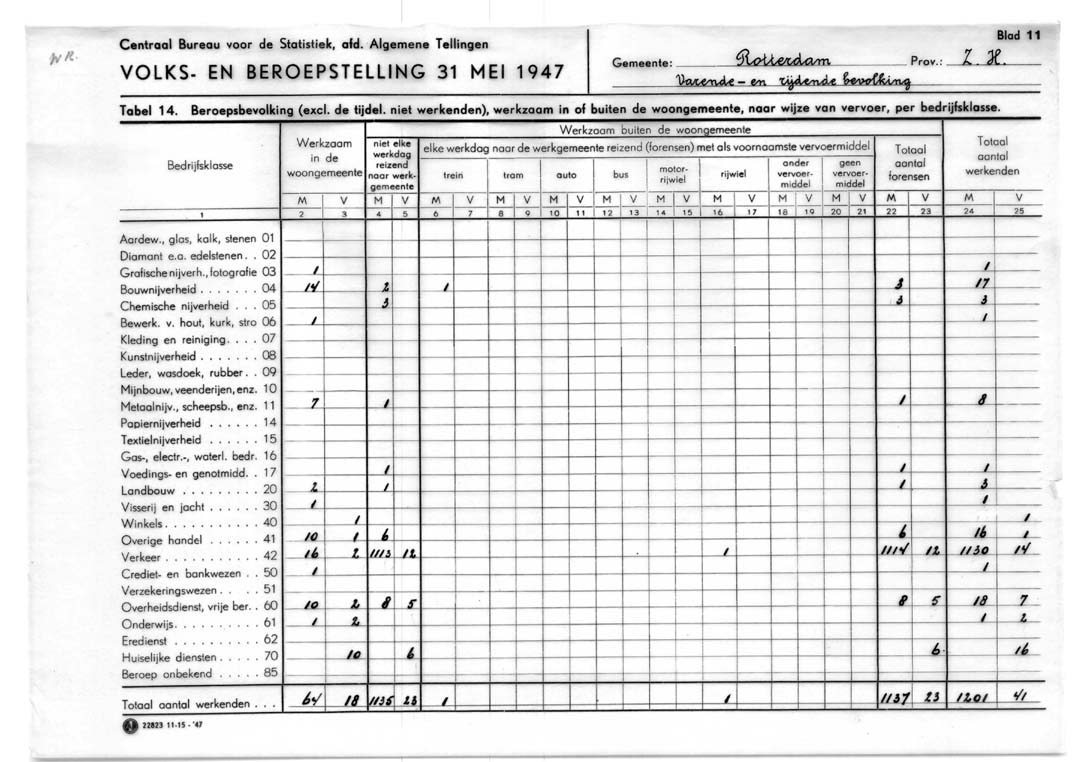 WR.
Centraal Bureau voor de Statistiek, afd. Algemene Tellingen
VOLKS- EN BEROEPSTELLING 31 MEI 1947
Blad 11
Gemeente: Rotterdam Prov.: Z. H.
Varende- en rijdende bevolking
Tabel 14. Beroepsbevolking (excl. de tijdel. niet werkenden), werkzaam in of buiten de woongemeente, naar wijze van vervoer, per bedrijfsklasse.
Bedrijfsklasse
Werkzaam in de woongemeente
Werkzaam buiten de woongemeente
niet elke werkdag reizend naar werk-gemeente
elke werkdag naar de werkgemeente reizend (forensen) met als voornaamste vervoermiddel
trein tram auto bus motor-rijwiel rijwiel ander vervoer-middel geen vervoer-middel
Totaal aantal forensen
Totaal aantal werkenden
M V M V M V M V M V M V M V M V M V M V M V M V
1 2 3 4 5 6 7 8 9 10 11 12 13 14 15 16 17 18 19 20 21 22 23 24 25
Aardew., glas, kalk, stenen 01
Diamant e.a. edelstenen . . 02
Grafische nijverh., fotografie 03 1 1
Bouwnijverheid . . . . . . . 04 14 2 1 3 17
Chemische nijverheid . . . 05 3 3 3
Bewerk. v. hout, kurk, stro 06 1 1
Kleding en reiniging. . . . 07
Kunstnijverheid . . . . . . . 08
Leder, wasdoek, rubber. . 09
Mijnbouw, veenderijen, enz. 10
Metaalnijv., scheepsb., enz. 11 7 1 1 8
Papiernijverheid . . . . . . 14
Textielnijverheid . . . . . . 15
Gas-, electr.-, waterl. bedr. 16
Voedings- en genotmidd. . 17 1 1 1
Landbouw . . . . . . . . . 20 2 1 1 3
Visserij en jacht . . . . . . 30 1 1
Winkels. . . . . . . . . . . 40 1 1
Overige handel . . . . . . 41 10 1 6 6 16 1
Verkeer . . . . . . . . . . 42 16 2 1113 12 1 1114 12 1130 14
Crediet- en bankwezen . . 50 1 1
Verzekeringswezen. . . . . 51
Overheidsdienst, vrije ber. . 60 10 2 8 5 8 5 18 7
Onderwijs. . . . . . . . . . 61 1 2 1 2
Eredienst . . . . . . . . . . 62
Huiselijke diensten . . . . . 70 10 6 6 16
Beroep onbekend . . . . . 85
Totaal aantal werkenden . . . 64 18 1135 23 1 1 1137 23 1201 41
22823 11-15 - '47